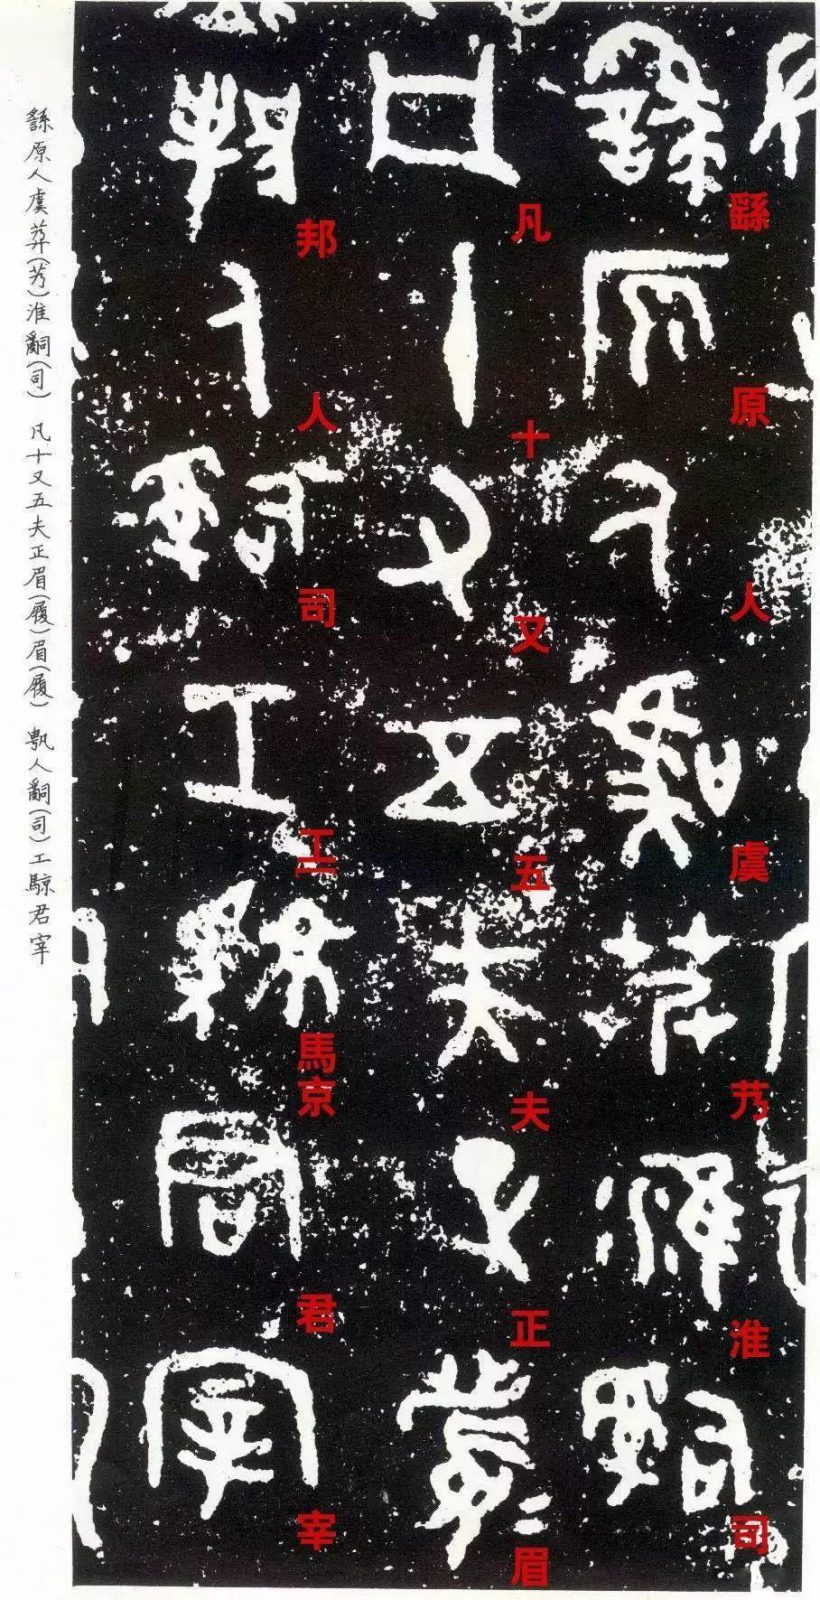 繇原人虞艿淮司
凡十又五夫正眉
邦人司工馬京君宰
繇原人虞莽(艿)淮𤔲(司) 凡十又五夫正眉(履)眉(履) 人𤔲(司)工君宰